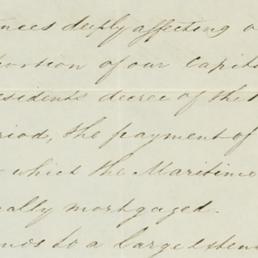 nces deeply affecting o
portion of our capita
esident's decree of the
riod, the payment of
which the Maritime
nally mortgaged.
to a large